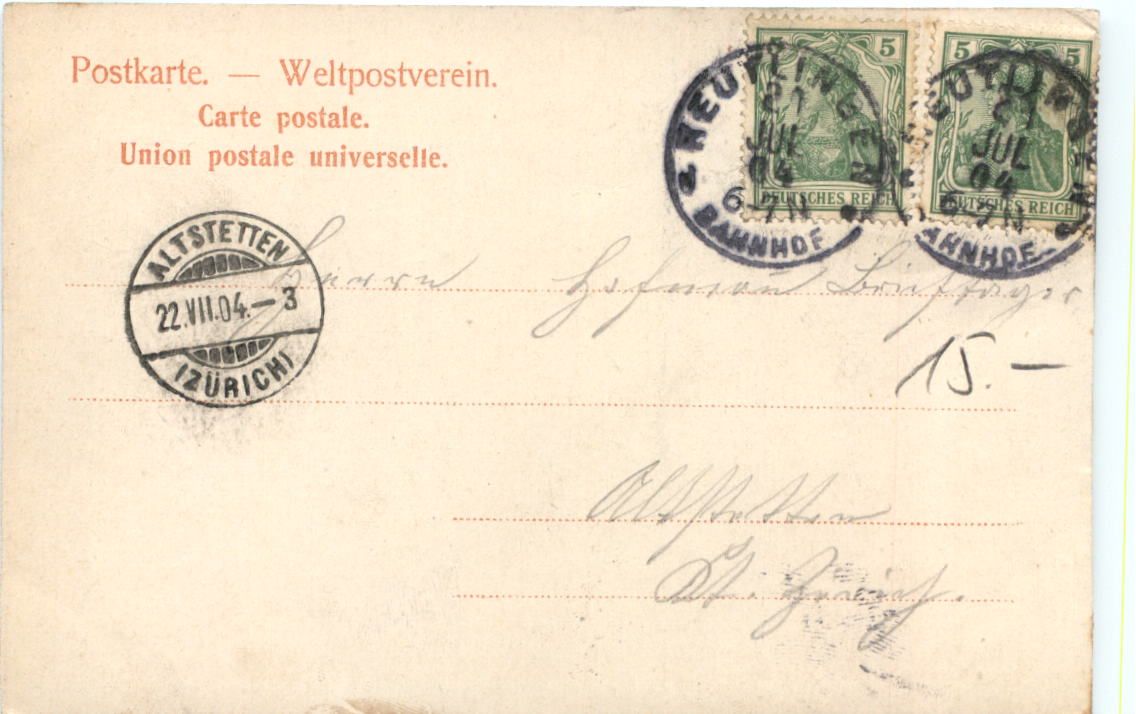 Postkarte. — Weltpostverein.
Carte postale.
Union postale universelle.
5 5
DEUTSCHES REICH
5 5
DEUTSCHES REICH
REUTLINGEN
21
JUL
04
6-7N
BAHNHOF
REUTLINGEN
21
JUL
04
6-7N
BAHNHOF
ALTSTETTEN
22.VII.04.-3
(ZÜRICH)
Herrn Hofmann Briefträger
15.—
Altstetten
Kt. Zürich.